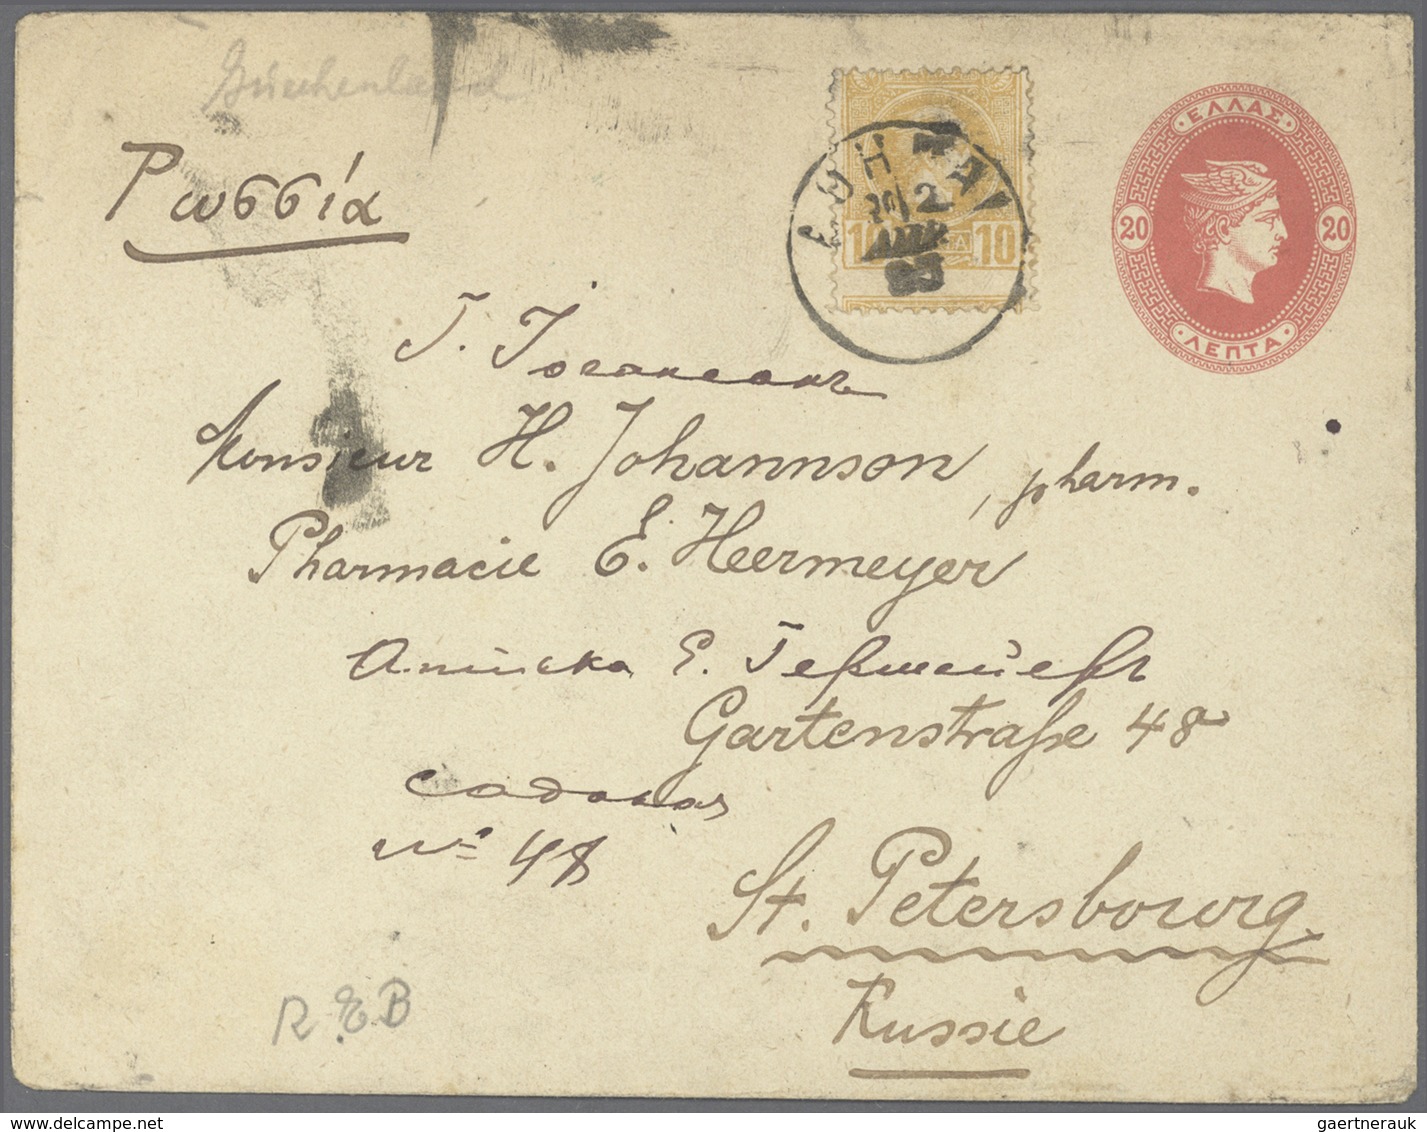 Griechenland
Ρωσσία
ΕΛΛΑΣ
20 20
ΛΕΠΤΑ
ΑΘΗΝΑΙ
2
10 10
Г. Іогансонъ
Monsieur H. Johannson, pharm.
Pharmacie E. Heermeyer
Аптека Е. Гермейеръ
Gartenstraße 48
Садовая
№ 48
St. Petersbourg
Russie
delcampe.net
gaertnerauk